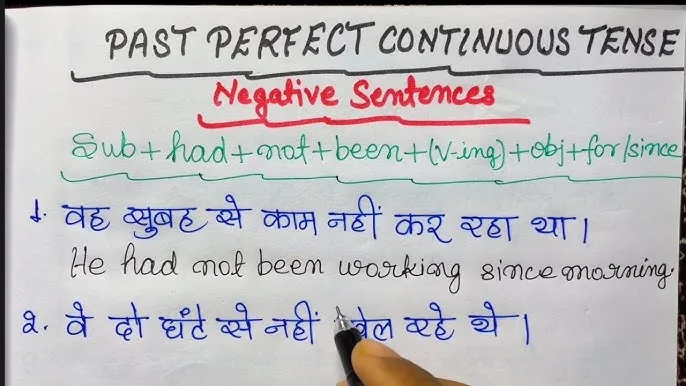 PAST PERFECT CONTINUOUS TENSE
Negative Sentences
Sub+had+not+been+(V-ing)+obj+for/since
1. वह सुबह से काम नहीं कर रहा था।
He had not been working since morning.
2. वे दो घंटे से नहीं रहे थे।